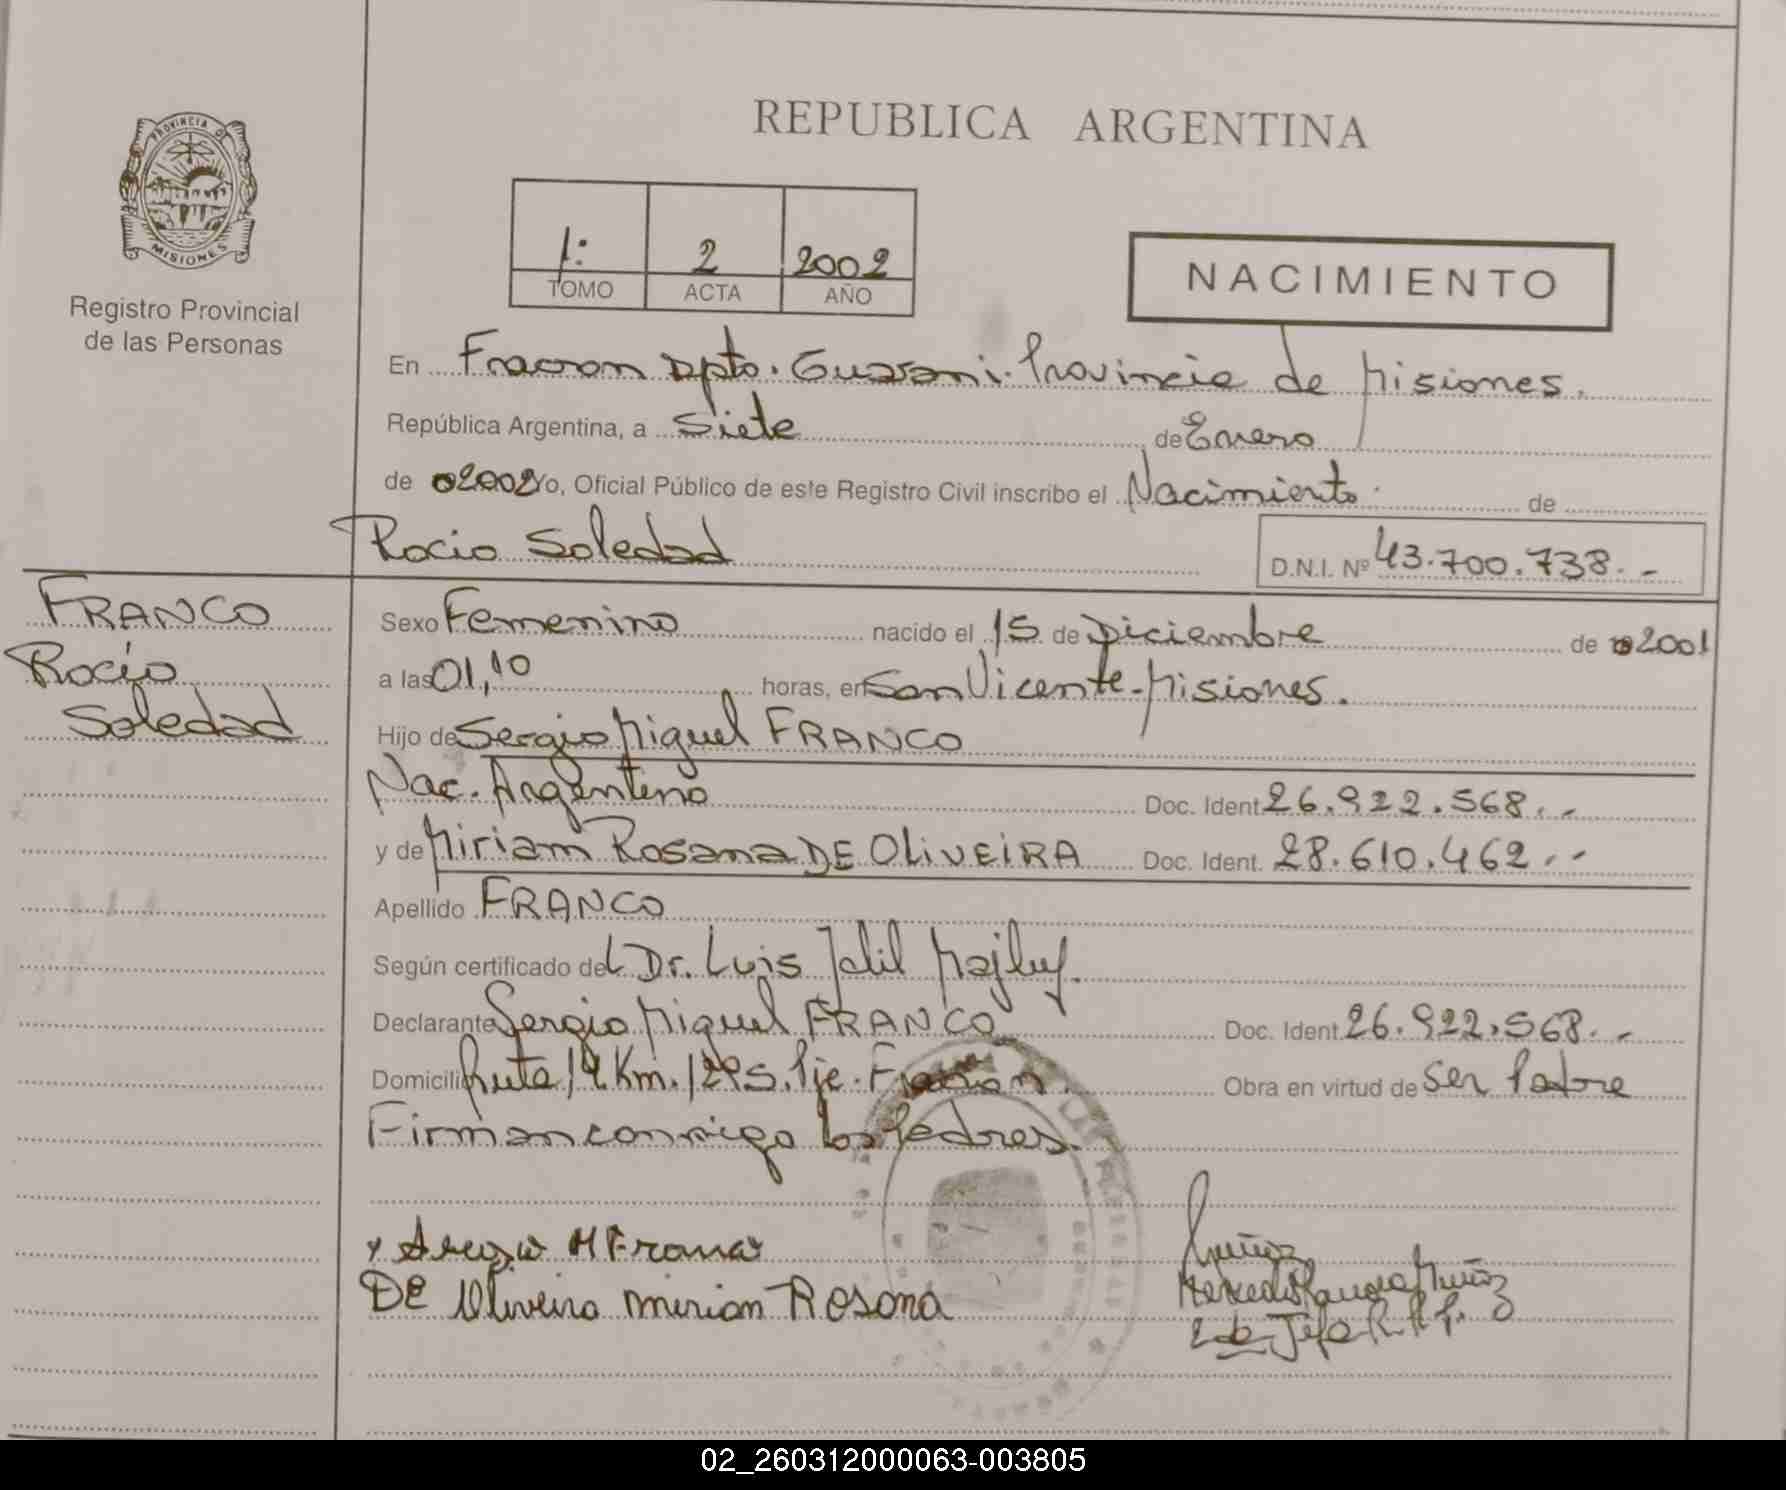 REPUBLICA ARGENTINA
PROVINCIA DE
MISIONES
Registro Provincial
de las Personas
1: 2 2002
TOMO ACTA AÑO
NACIMIENTO
En Fracran Dpto. Guarani. Provincia de Misiones.
República Argentina, a Siete de Enero
de 2002 Yo, Oficial Público de este Registro Civil inscribo el Nacimiento de
Rocio Soledad
D.N.I. Nº 43.700.738.-
FRANCO
Rocio
Soledad
Sexo Femenino nacido el 15 de Diciembre de 2001
a las 01,10 horas, en San Vicente-Misiones.
Hijo de Sergio Miguel FRANCO
Nac. Argentino Doc. Ident. 26.922.568.-
y de Miriam Rosana DE OLIVEIRA Doc. Ident. 28.610.462.-
Apellido FRANCO
Según certificado del Dr. Luis Jalil Majluf.
Declarante Sergio Miguel FRANCO Doc. Ident. 26.922.568.-
Domicilio Ruta 14 Km. Pje. Fracran. Obra en virtud de Ser Padre
Firman conmigo los Padres.
Sergio M Franco
DE Oliveira Mirian Rosana
Muñoz
Muñoz
Jefa R.
02_260312000063-003805